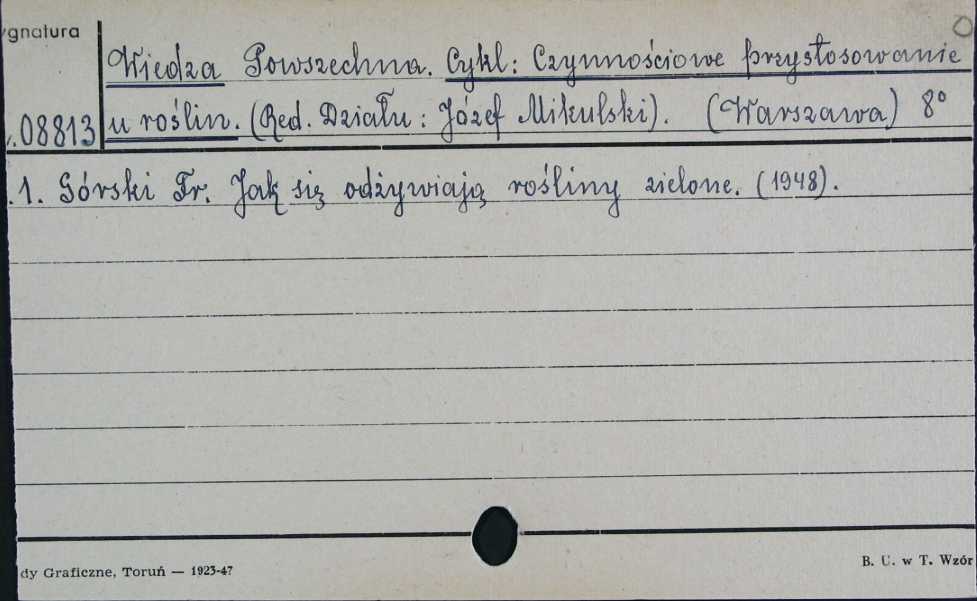 ygnatura
Wiedza Powszechna. Cykl: Czynnościowe przystosowanie
.08813 u roślin. (Red. Działu: Józef Mikulski). (Warszawa) 8°
1. Górski Fr. Jak się odżywiają rośliny zielone. (1948).
dy Graficzne, Toruń — 1923-47
B. U. w T. Wzór